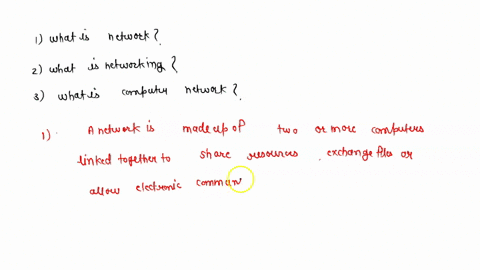 1) what is network?
2) what is networking?
3) what is computer network?
1). A network is made up of two or more computers
linked together to share resources, exchange files or
allow electronic commun